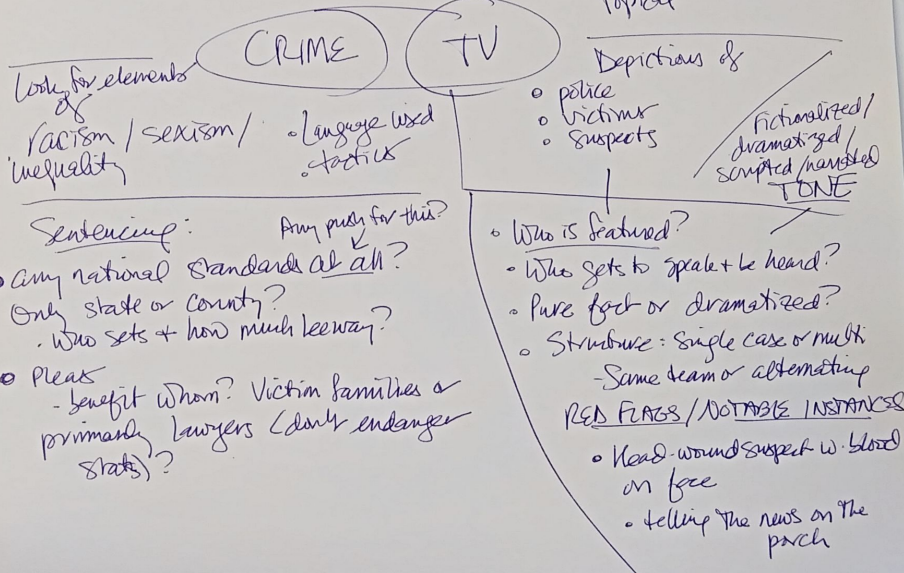 Topical
CRIME
TV
Look for elements
of
racism / sexism /
inequality
• Language used
• tactics
Depictions of
• police
• victims
• suspects
Fictionalized /
dramatized /
scripted / narrated
TONE
Sentencing:
Any push for this?
• any national standards at all?
Only state or county?
• Who sets + how much leeway?
• Pleas
- benefit whom? Victim families or
primarily lawyers (don't endanger
stats)?
• Who is featured?
• Who gets to speak + be heard?
• Pure fact or dramatized?
• Structure: Single case or multi
- Same team or alternating
RED FLAGS / NOTABLE INSTANCES
• Head-wound suspect w. blood
on face
• telling the news on the
porch